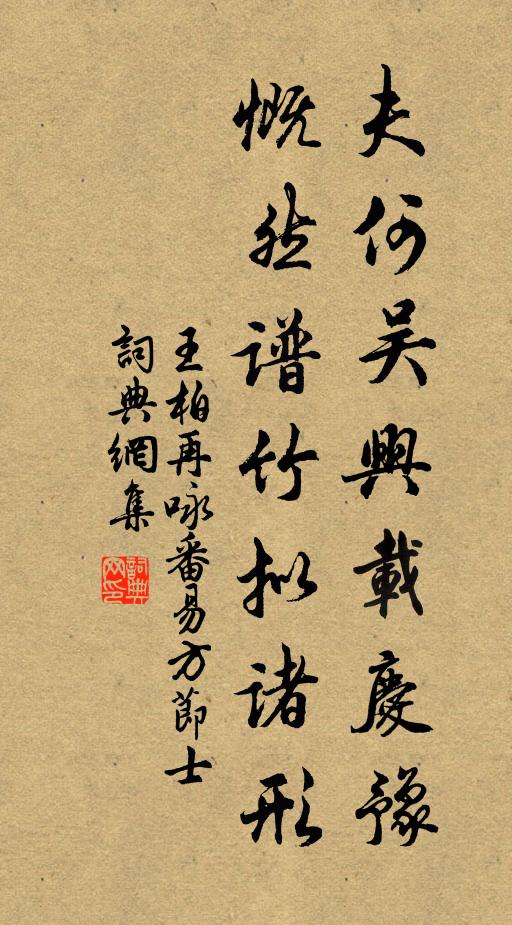 夫何吴興載慶豫
慨然譜竹拟諸形
王柏再咏番易方節士
詞典網集
詞典网印